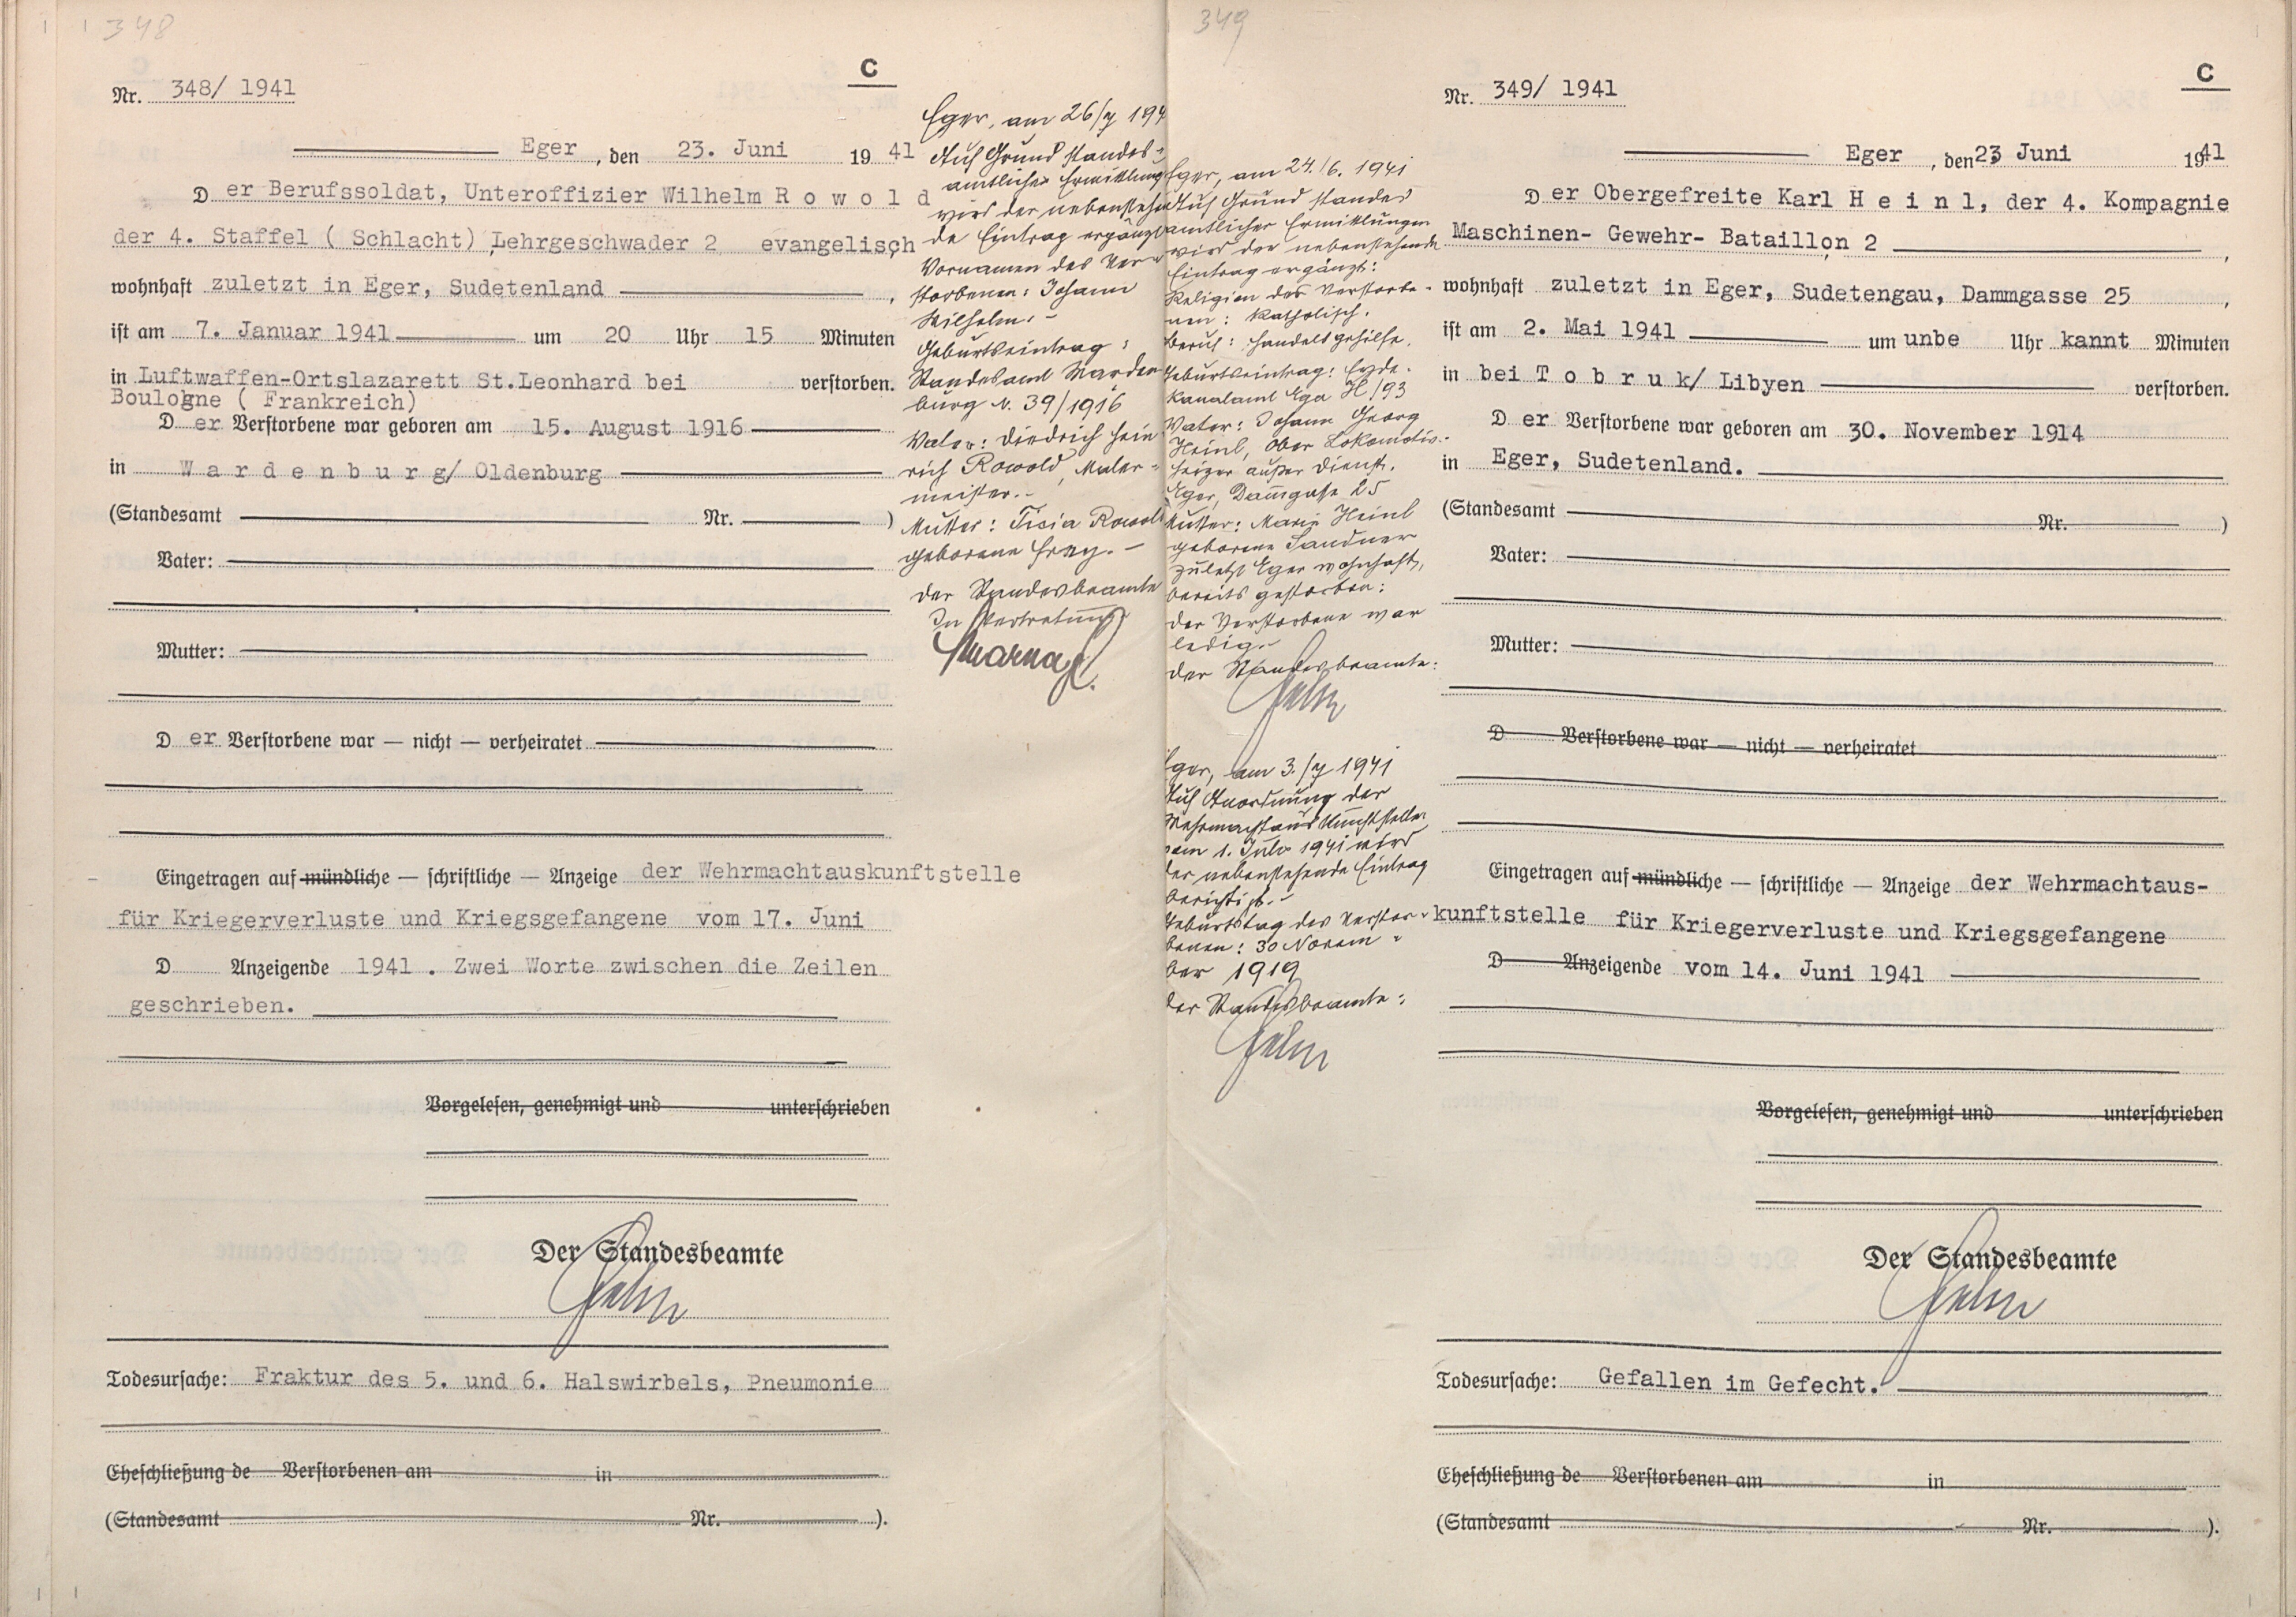 348
C
Nr. 348/ 1941
Eger, den 23. Juni 19 41
D er Berufssoldat, Unteroffizier Wilhelm R o w o l d
der 4. Staffel ( Schlacht) Lehrgeschwader 2 evangelisch
wohnhaft zuletzt in Eger, Sudetenland ,
ist am 7. Januar 1941 um 20 Uhr 15 Minuten
in Luftwaffen-Ortslazarett St.Leonhard bei verstorben.
Boulogne ( Frankreich)
D er Verstorbene war geboren am 15. August 1916
in W a r d e n b u r g/ Oldenburg
(Standesamt Nr. )
Vater:
Mutter:
D er Verstorbene war — nicht — verheiratet
Eingetragen auf mündliche — schriftliche — Anzeige der Wehrmachtauskunftstelle
für Kriegerverluste und Kriegsgefangene vom 17. Juni
D Anzeigende 1941 . Zwei Worte zwischen die Zeilen
geschrieben.
Vorgelesen, genehmigt und unterschrieben
Der Standesbeamte
Todesursache: Fraktur des 5. und 6. Halswirbels, Pneumonie
Eheschließung de Verstorbenen am in
(Standesamt Nr. ).
Eger, am 26/7 194
Auf Grund standes-
amtlicher Ermittlung
wird der nebenstehen
de Eintrag ergänzt
Vornamen des Ver-
storbenen: Johann
Wilhelm. -
Geburtseintrag:
Standesamt Warden
burg N. 39/1916
Vater: Diedrich Hein
rich Rowold, Maler-
meister. -
Mutter: Rowold
geborene
Der Standesbeamte
In Vertretung
349
C
Nr. 349/ 1941
Eger, den 23 Juni 1941
D er Obergefreite Karl H e i n l, der 4. Kompagnie
Maschinen- Gewehr- Bataillon 2 ,
wohnhaft zuletzt in Eger, Sudetengau, Dammgasse 25 ,
ist am 2. Mai 1941 um unbe Uhr kannt Minuten
in bei T o b r u k/ Libyen verstorben.
D er Verstorbene war geboren am 30. November 1914
in Eger, Sudetenland.
(Standesamt Nr. )
Vater:
Mutter:
D Verstorbene war — nicht — verheiratet
Eingetragen auf mündliche — schriftliche — Anzeige der Wehrmachtaus-
kunftstelle für Kriegerverluste und Kriegsgefangene
D Anzeigende vom 14. Juni 1941
Vorgelesen, genehmigt und unterschrieben
Der Standesbeamte
Todesursache: Gefallen im Gefecht.
Eheschließung de Verstorbenen am in
(Standesamt Nr. ).
Eger, am 24./6. 1941
Auf Grund standes
amtlicher Ermittlungen
wird der nebenstehende
Eintrag ergänzt:
Religion des Verstorbe-
nen: katholisch.
Beruf: Handelsgehilfe.
Geburtseintrag: Erzde-
kanalamt Eger H/93
Vater: Johann Georg
Heinl, Ober Lokomotiv-
heizer außer Dienst,
Eger, Dammgasse 25
Mutter: Marie Heinl
geborene Sandner
zuletzt Eger wohnhaft,
bereits gestorben:
Der Verstorbene war
ledig. -
Der Standesbeamte:
Eger, am 3./7 1941
Auf Anordnung der
Wehrmachtauskunftstelle
vom 1. Juli 1941 wird
der nebenstehende Eintrag
berichtigt. -
Geburtstag des Verstor-
benen: 30 Novem-
ber 1919
Der Standesbeamte: